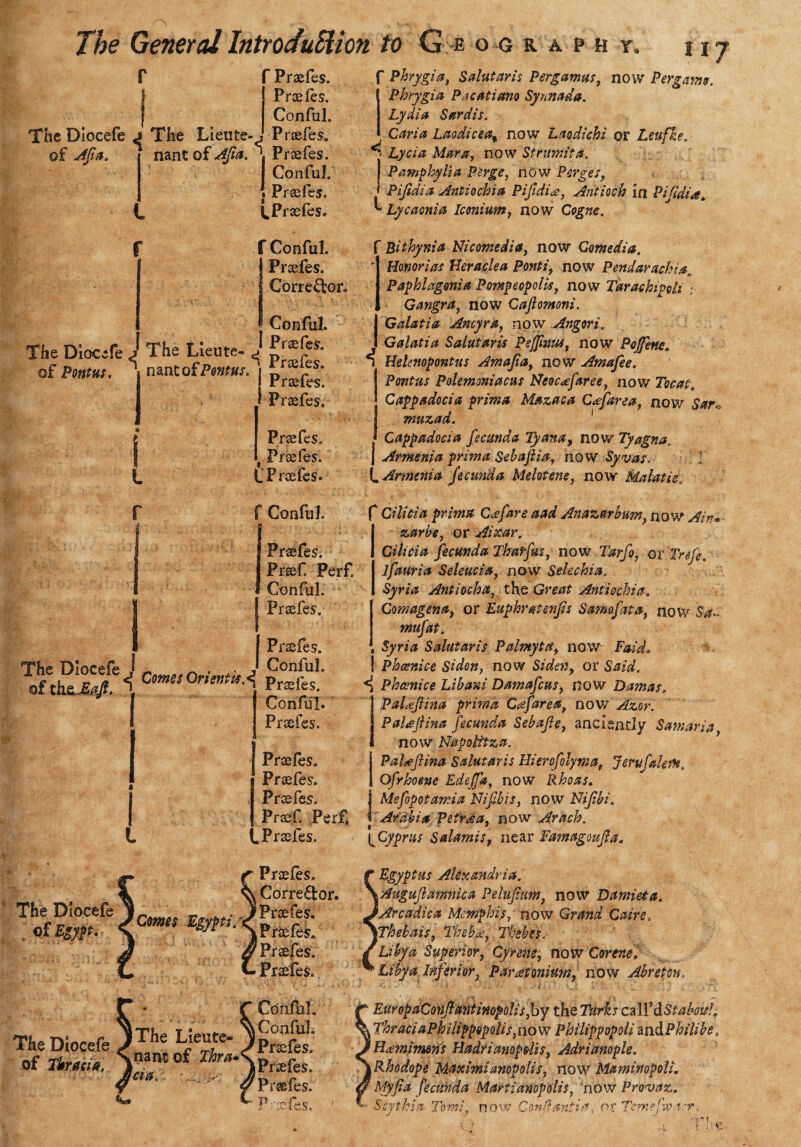 The General Introduction to GEOGRAPHY. 117
The Diocese of Asia.
The Lieutenant of Asia.
Præses. Phrygia, Salutaris Pergamus, now Pergamo.
Præses. Phrygia Pacatiano Synnada.
Consul. Lydia Sardis.
Præses. Caria Laodicea, now Laodichi or Leuske.
Præses. Lycia Mara, now Strumita.
Consul. Pamphylia Perge, now Perges,
Præses. Pisidia Antiochia Pisidiæ, Antioch in Pisidiæ.
Præses. Lycaonia Iconium, now Cogne.
The Diocese of Pontus.
The Lieutenant of Pontus.
Consul. Bithynia Nicomedia, now Comedia.
Præses. Honorias Heraclea Ponti, now Pendarachia.
Corrector. Paphlagonia Pompeopolis, now Tarachipoli :
Gangra, now Castomoni.
Consul. Galatia Ancyra, now Angori.
Præses. Galatia Salutaris Pessinus, now Possene.
Præses. Helenopontus Amasia, now Amasee.
Præses. Pontus Polemoniacus Neocæsaree, now Tocat.
Præses. Cappadocia prima Mazaca Cæsarea, now Sar-
muzad.
Præses. Cappadocia secunda Tyana, now Tyagna.
Præses. Armenia prima Sebastia, now Syvas.
Præses. Armenia secunda Melotene, now Malatie.
The Diocese of the East.
Comes Orientis.
Consul. Cilicia prima Cæsare aad Anazarbum, now Ain-
zarbe, or Aixar.
Præses. Cilicia secunda Tharsus, now Tarso, or Trese.
Præf. Perf. Isauria Seleucia, now Selechia.
Consul. Syria Antiocha, the Great Antiochia.
Præses. Comagena, or Euphratensis Samosata, now Sa-
musat.
Præses. Syria Salutaris Palmyta, now Faid.
Consul. Phœnice Sidon, now Siden, or Said.
Præses. Phœnice Libani Damascus, now Damas.
Consul. Palæstina prima Cæsarea, now Azor.
Præses. Palæstina secunda Sebaste, anciently Samaria,
now Napolitza.
Præses. Palæstina Salutaris Hierosolyma, Jerusalem.
Præses. Osrhoene Edessa, now Rhoas.
Præses. Mesopotamia Nisibis, now Nisibi.
Præf. Perf. Arabia Petræa, now Arach.
Præses. Cyprus Salamis, near Famagousta.
The Diocese of Egypt.
Comes Egypti.
Præses. Egyptus Alexandria.
Corrector. Augustamnica Pelusium, now Damieta.
Præses. Arcadica Memphis, now Grand Caire.
Præses. Thebais, Thebæ, Thebes.
Præses. Libya Superior, Cyrene, now Corene.
Præses. Libya Inferior, Parætonium, now Abreton.
The Diocese of Thracia.
The Lieutenant of Thracia.
Consul. Europa Constantinopolis, by the Turks call'd Staboul.
Consul. Thracia Philippopolis, now Philippopoli and Philibe.
Præses. Hæmimons Hadrianopolis, Adrianople.
Præses. Rhodope Maximianopolis, now Maminopoli.
Præses. Mysia secunda Martianopolis, now Provaz.
Præses. Scythia Tomi, now Constantia, or Temeswar.
The